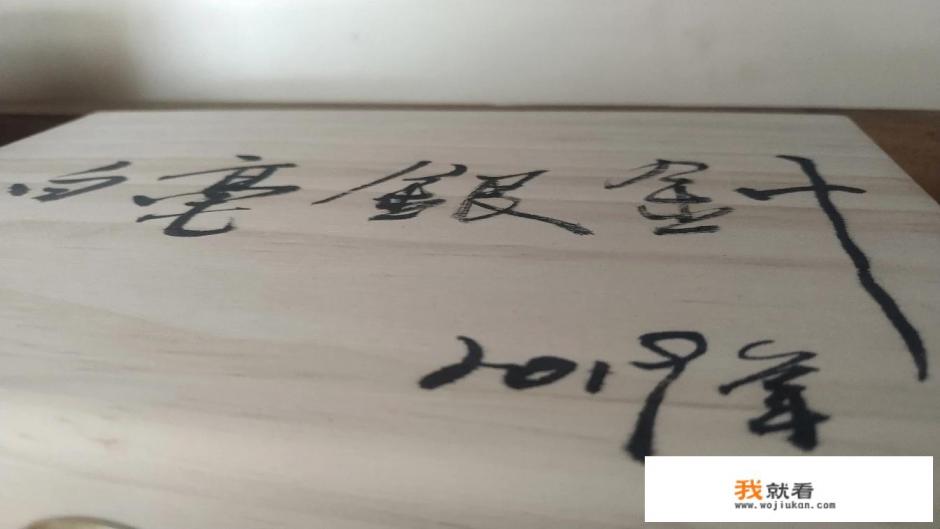 白毫銀針
2019年
我就看
www.wojiukan.com